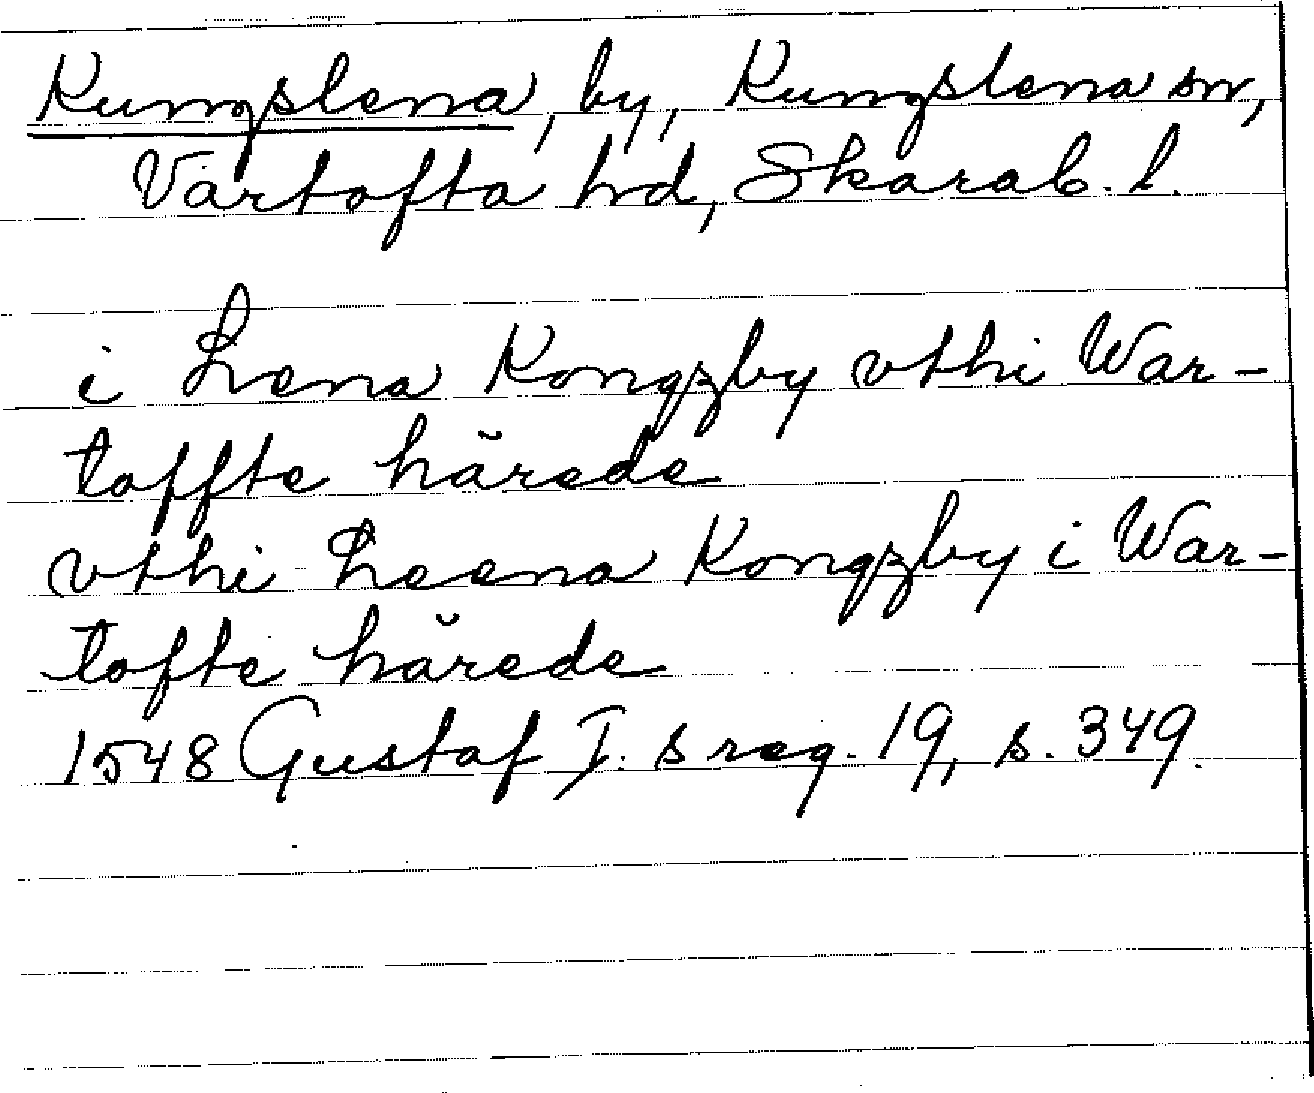 Kungslena, by, Kungslena sn,
Vartofta hd, Skarab. l.
i Lena Kongzby vthi War-
toffte hărede
vthi Leena Kongzby i War-
tofte hărede
1548 Gustaf I:s reg. 19, s. 349.